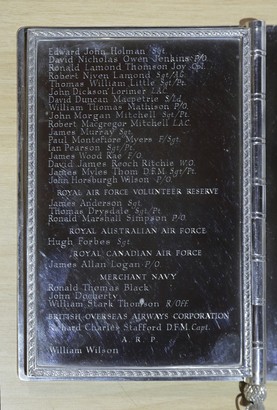 Edward John Holman Sgt.
David Nicholas Owen Jenkins P/O.
Ronald Lamond Thomson Joy Cpl.
Robert Niven Lamond Sgt/AG.
Thomas William Little Sgt/Pt.
John Dickson Lorimer LAC.
David Duncan Macpetrie S/Ld.
William Thomas Mathison P/O.
John Morgan Mitchell Sgt/Pt.
Robert Macgregor Mitchell LAC.
James Murray Sgt.
Paul Montefiore Myers F/Sgt.
Ian Pearson Sgt/Pt.
James Wood Rae F/O.
David James Reoch Ritchie W.O.
James Myles Thom D.F.M. Sgt/Pt.
John Horsburgh Wilson P/O.
ROYAL AIR FORCE VOLUNTEER RESERVE
James Anderson Sgt.
Thomas Drysdale Sgt/Pt.
Ronald Marshall Simpson P/O.
ROYAL AUSTRALIAN AIR FORCE
Hugh Forbes Sgt.
ROYAL CANADIAN AIR FORCE
James Allan Logan P/O.
MERCHANT NAVY
Ronald Thomas Black
John Docherty
William Stark Thomson R/Off.
BRITISH OVERSEAS AIRWAYS CORPORATION
Richard Charles Stafford D.F.M. Capt.
A.R.P.
William Wilson